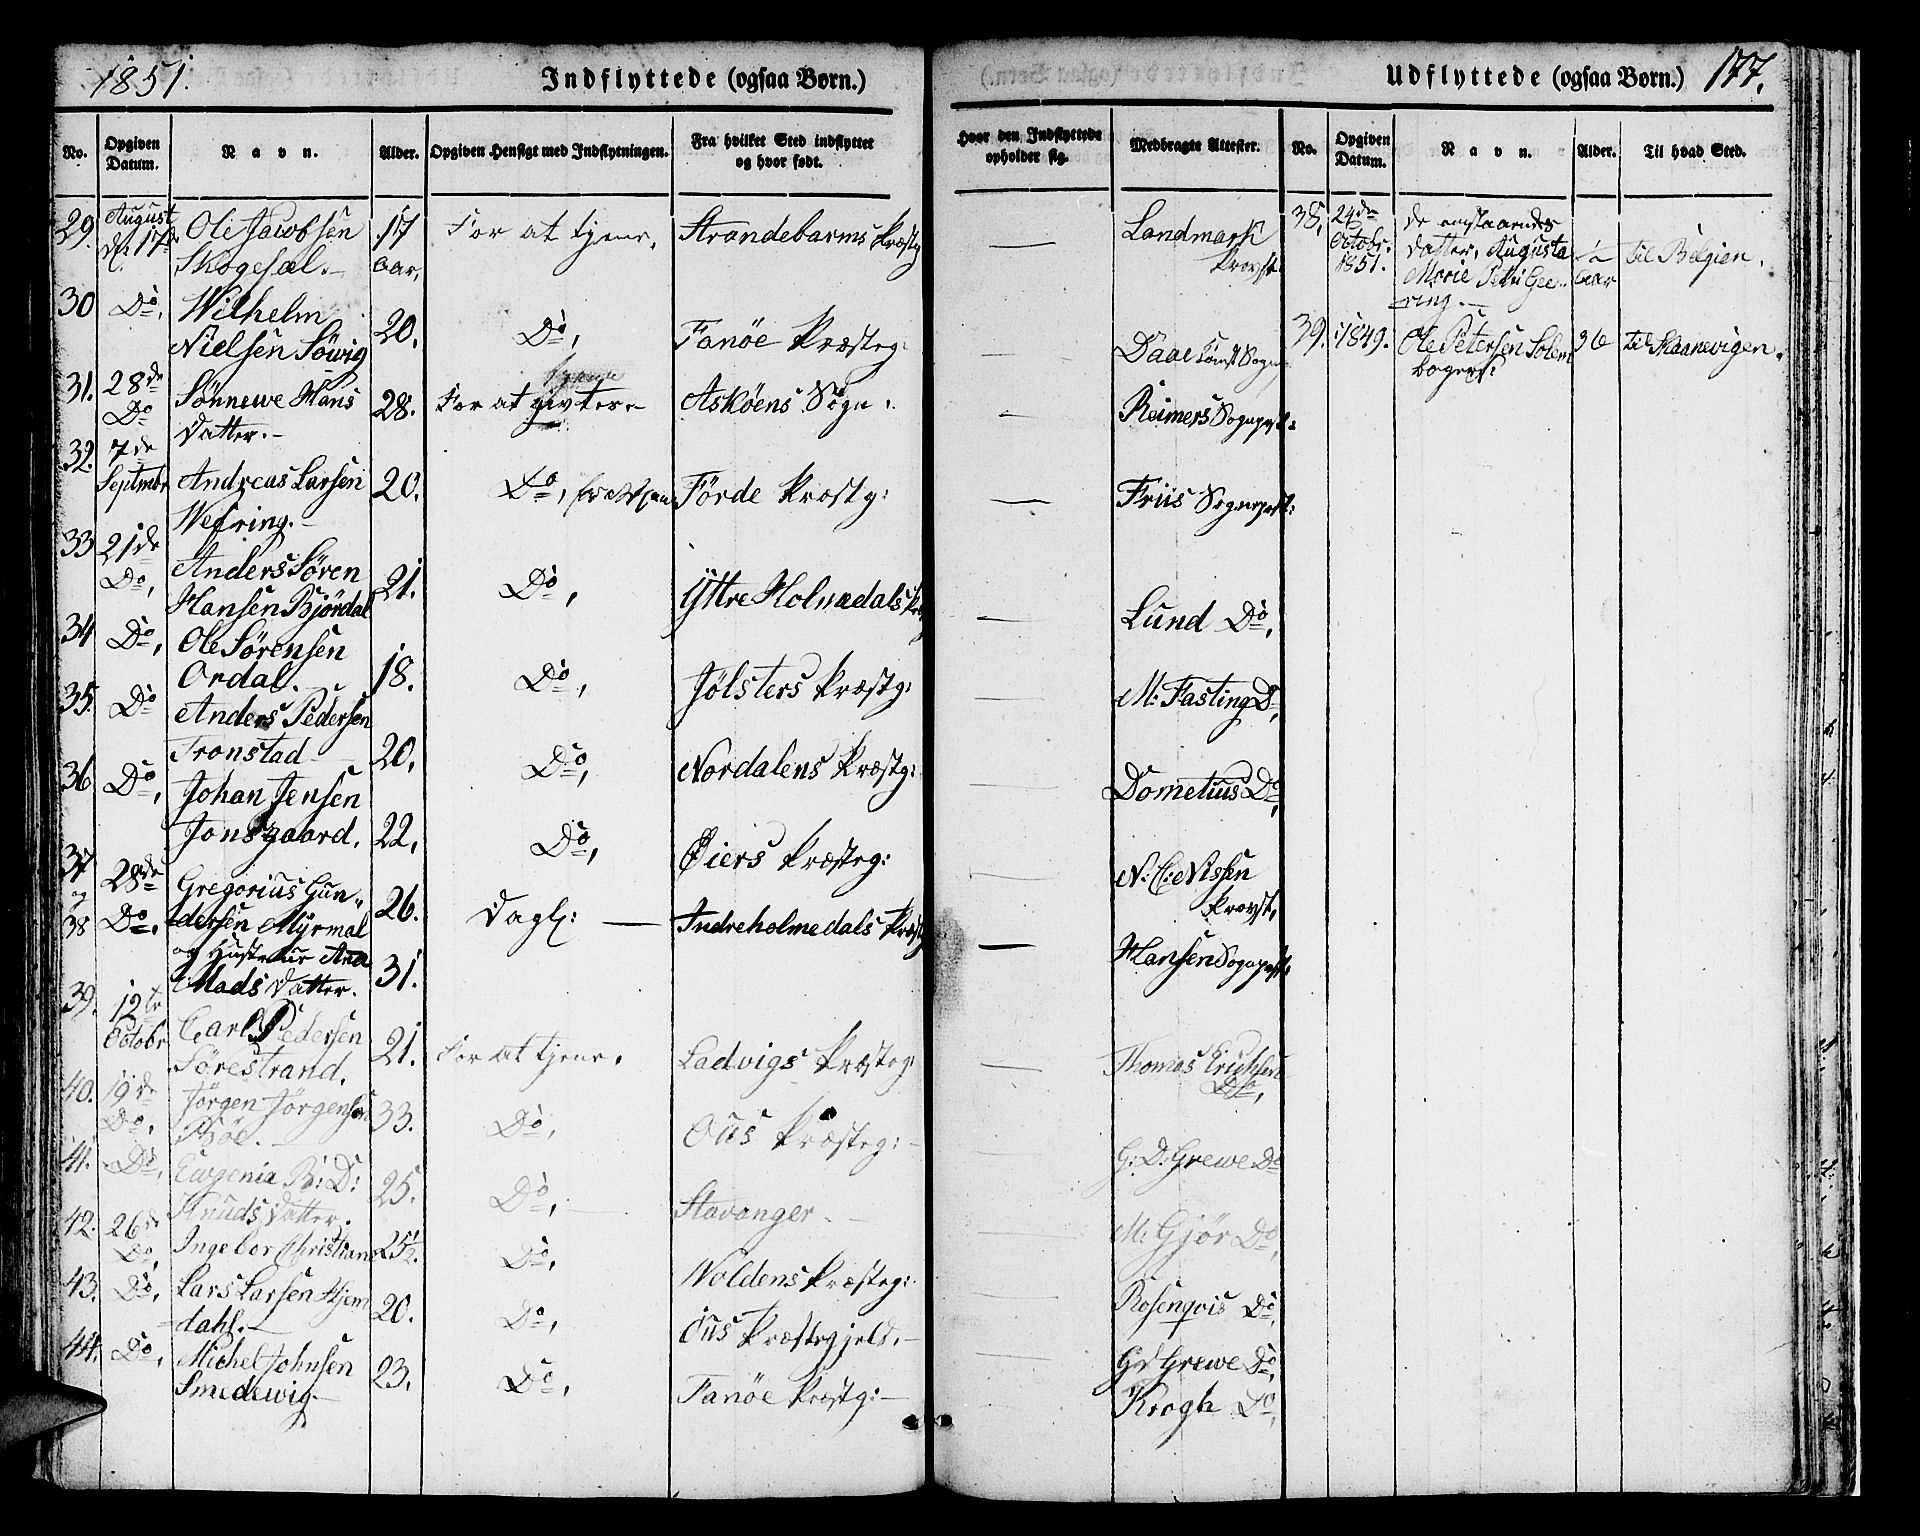 1851.
Indflyttede (ogsaa Børn.)
No. Opgiven Datum. Navn. Alder. Opgiven Hensigt med Indflytningen. Fra hvilket Sted indflyttet og hvor født.
29. August d: 17de Ole Jacobsen 17 For at tjene, Strandebarms Præstg
Skogesæl. aar,
30 Do, Wilhelm
Nielsen Söwig 20. Do, Fanöe Præsteg:
31. 28de Do Sönnewe Hans 28. For at givtes Asköens Sogn.
Datter.
32. 7de Septmbr Andreas Larsen 20. Do, Förde Præstg:
Wefring.
33 21de Do, Anders Sören
Hansen Björdal 21. Do, Yttre Holmedals
34 Do, Ole Sörensen
Ordal. 18. Do, Jölsters Præstg:
35. Do Anders Pedersen
Tronstad 20, Do, Nordalens Præstg:
36 Do, Johan Jensen
Jonsgaard. 22, Do, Øiers Præsteg:
37 og 38 28de Do. Gregorius Gun„
dersen Myrmal 26. Dagl: Indreholmedals Præstg
og Hustrue Ana
Mads Datter. 31.
39. 12te Octobr Carl Pedersen
Sörestrand. 21. For at tjene. Ladvigs Præsteg:
40. 19de Do, Jörgen Jörgensen 33. Do, Ous Præsteg:
Böe.
41. Do, Ewgenia B: D: 25. Do, Stavanger
Knuds Datter.
42. 26de Do, Ingebor Christian 25½. Do, Woldens Præsteg:
43. Do, Lars Larsen Hjem
dahl. 20. Do, Ous Præstegjeld,
44. Do, Michel Johnsen
Smedewig. 23, Do, Fanöe Præstg:
Udflyttede (ogsaa Børn.) 177.
Hvor den Indflyttede opholder sig. Medbragte Attester. No. Opgiven Datum. Navn. Alder. Til hvad Sted.
Landmark
Provst
Daae Const Sogn
Reimers Sognepst:
Friis Sognepst:
Lund Do,
M: Fasting Do,
Dometius Do,
N: C: Nissen
Provst,
Hansen Sognepst:
Thomas Erichsen
Do,
G: D: Grewe Do
M: Gjör Do,
Rosenqvis Do,
Gd Grewe Do,
Krogh Do,
38, 24de Octobr. 1851. de omstaaendes
Datter, Augusta ½ til Belgien.
Marie Petri Gee„ aar
ring.
39. 1849. Ole Petersen Solem 36 til Skaanevigen.